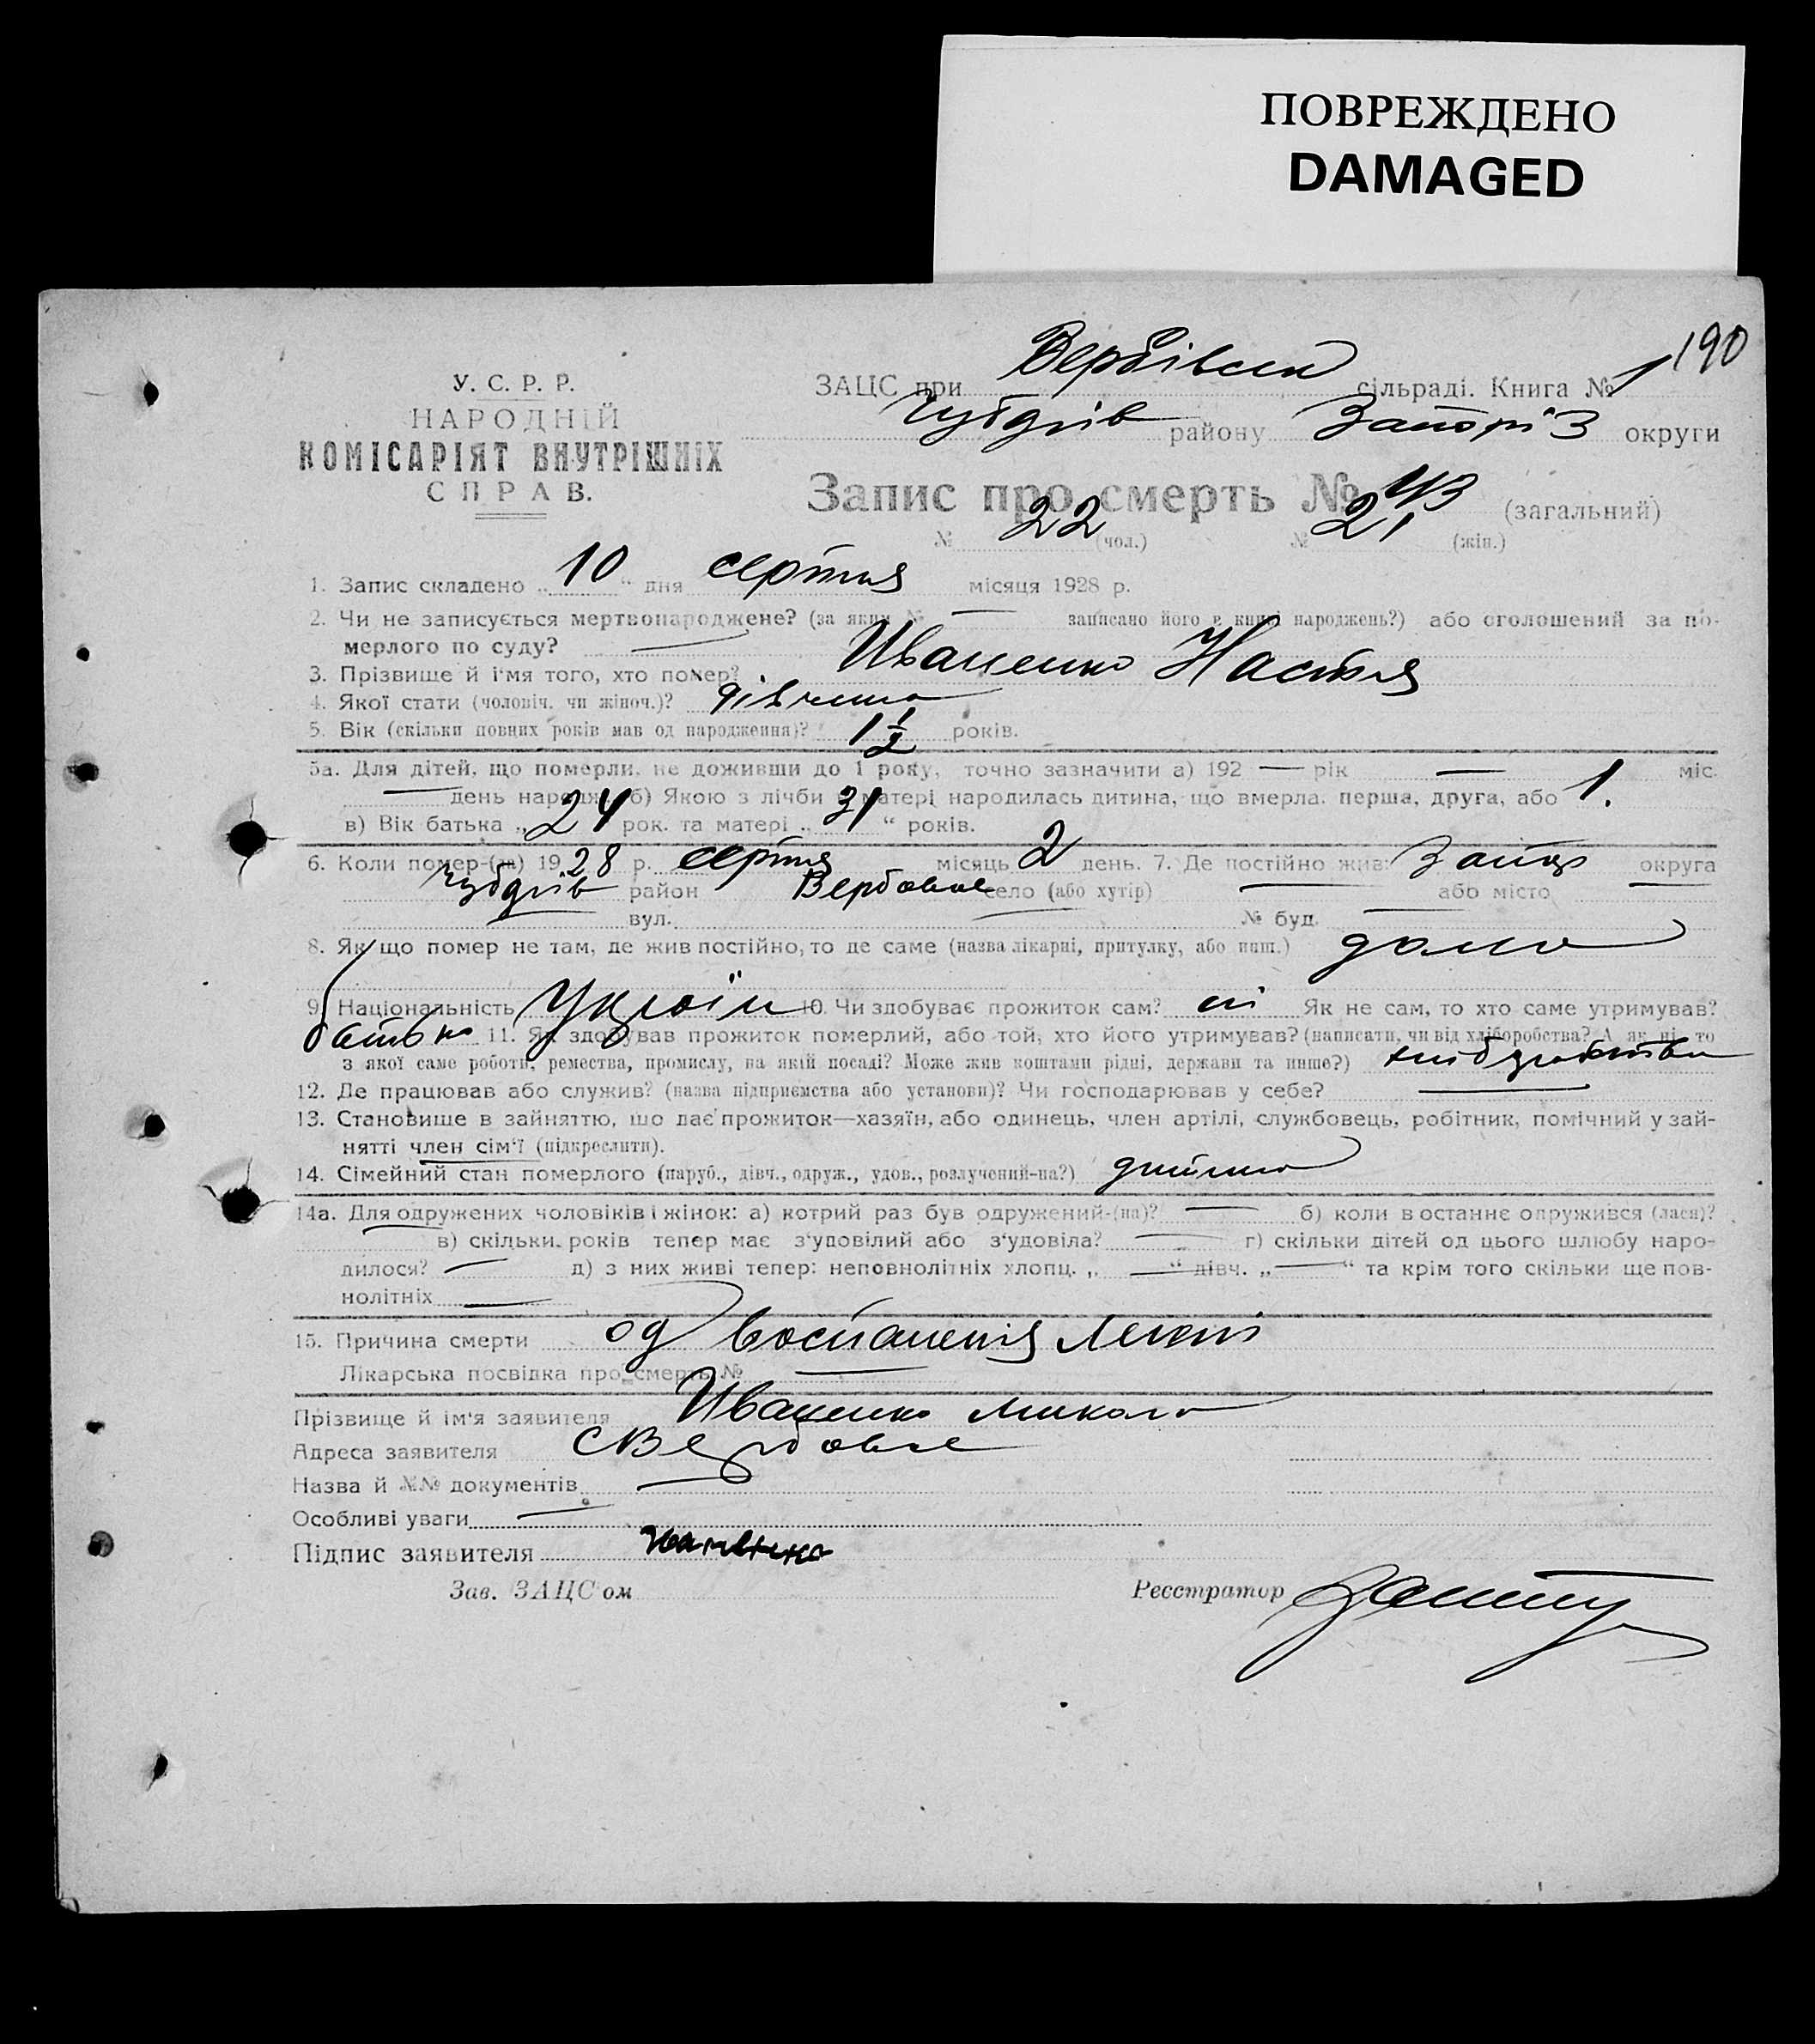 ПОВРЕЖДЕНО
DAMAGED
190
У. С. Р. Р.
НАРОДНІЙ
КОМІСАРІЯТ ВНУТРІШНІХ
СПРАВ.
ЗАЦС при Вербівськ сільраді. Книга № 1
району Запорі'з округи
Запис про смерть № 43 (загальний)
№ 22 (чол.) № 21 (жін.)
1. Запис складено „ 10 “ дня серпня місяця 1928 р.
2. Чи не записується мертвонароджене? (за яким № — записано його в книзі народжень?) або оголошений за по-
мерлого по суду? —
3. Прізвище й ім'я того, хто помер? Иваненко Настя
4. Якої стати (чоловіч. чи жіноч.)? дівчина
5. Вік (скільки повних років мав од народження)? 1 1/2 років.
5а. Для дітей, що померли, не доживши до 1 року, точно зазначити а) 192 — рік — міс.
— день народж. б) Якою з лічби у матері народилась дитина, що вмерла. перша, друга, або 1.
в) Вік батька „ 24 рок. та матері „ 31 “ років.
6. Коли помер-(ла) 1928 р. серпня місяць 2 день. 7. Де постійно жив: Запор округа
район Вербовое село (або хутір) — або місто —
— вул. — № буд. —
8. Якщо помер не там, де жив постійно, то де саме (назва лікарні, притулку, або инш.) дома
9. Національність Україн 10. Чи здобуває прожиток сам? ні Як не сам, то хто саме утримував?
батько 11. Як здобував прожиток померлий, або той, хто його утримував? (написати, чи від хліборобства? А як ні, то
з якої саме роботи, ремества, промислу, на якій посаді? Може жив коштами рідні, держави та инше?) хліборобства
12. Де працював або служив? (назва підприємства або установи)? Чи господарював у себе? —
13. Становище в зайняттю, що дає прожиток—хазяїн, або одинець, член артілі, службовець, робітник, помічний у зай-
нятті член сім'ї (підкреслити).
14. Сімейний стан померлого (паруб., дівч., одруж., удов., розлучений-на?) дитина
14а. Для одружених чоловіків і жінок: а) котрий раз був одружений-(на)? — б) коли в останнє одружився (лася)?
— в) скільки років тепер має з'удовілий або з'удовіла? — г) скільки дітей од цього шлюбу наро-
дилося? — д) з них живі тепер: неповнолітніх хлопц. „ — “ дівч. „ — “ та крім того скільки ще пов-
нолітніх —
15. Причина смерти од воспаления легкі
Лікарська посвідка про смерть № —
Прізвище й ім'я заявителя Иваненко Микола
Адреса заявителя с Вербовое
Назва й №№ документів —
Особливі уваги —
Підпис заявителя
Зав. ЗАЦС'ом Реєстратор